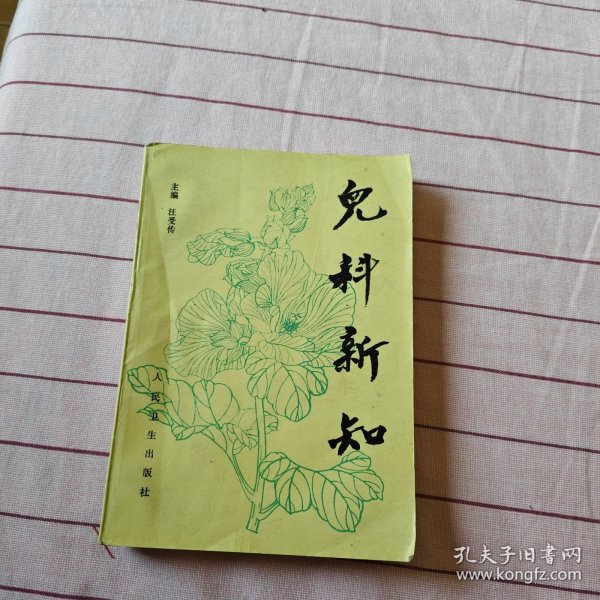 兒科新知
主编 汪受传
人民卫生出版社
孔夫子旧书网
www.kongfz.com